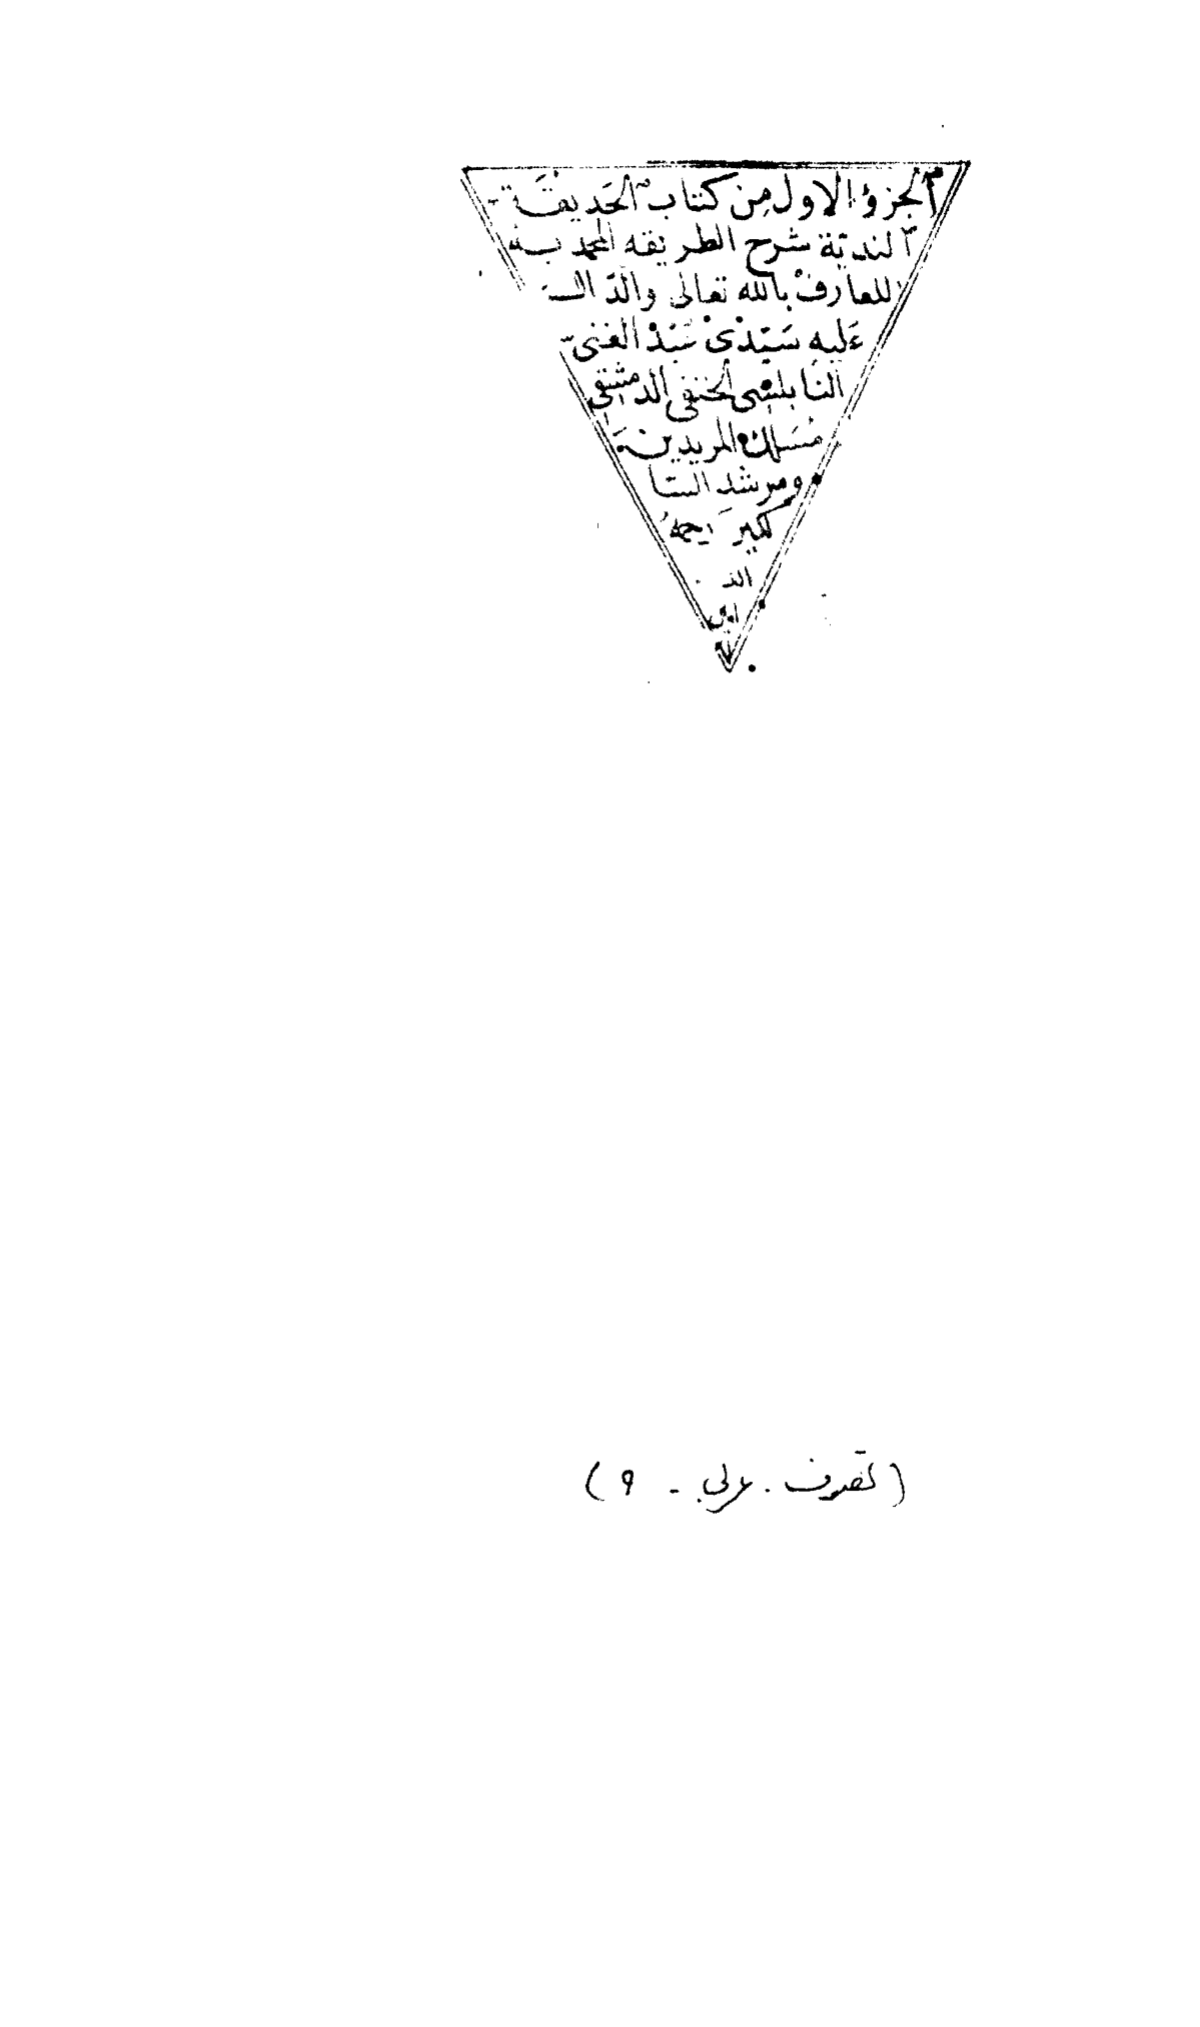 الجزؤ الاول من كتاب الحديقة
الندية شرح الطريقه المحمدية
للعارف بالله تعالى والدّال
عليه سيّدى عبد الغنى
النابلسى الحنفى الدمشقى
مسلك المريدين
ومرشد السا
لكين رحمهُ
الله
امين
(تصوف . عربي - ٩)